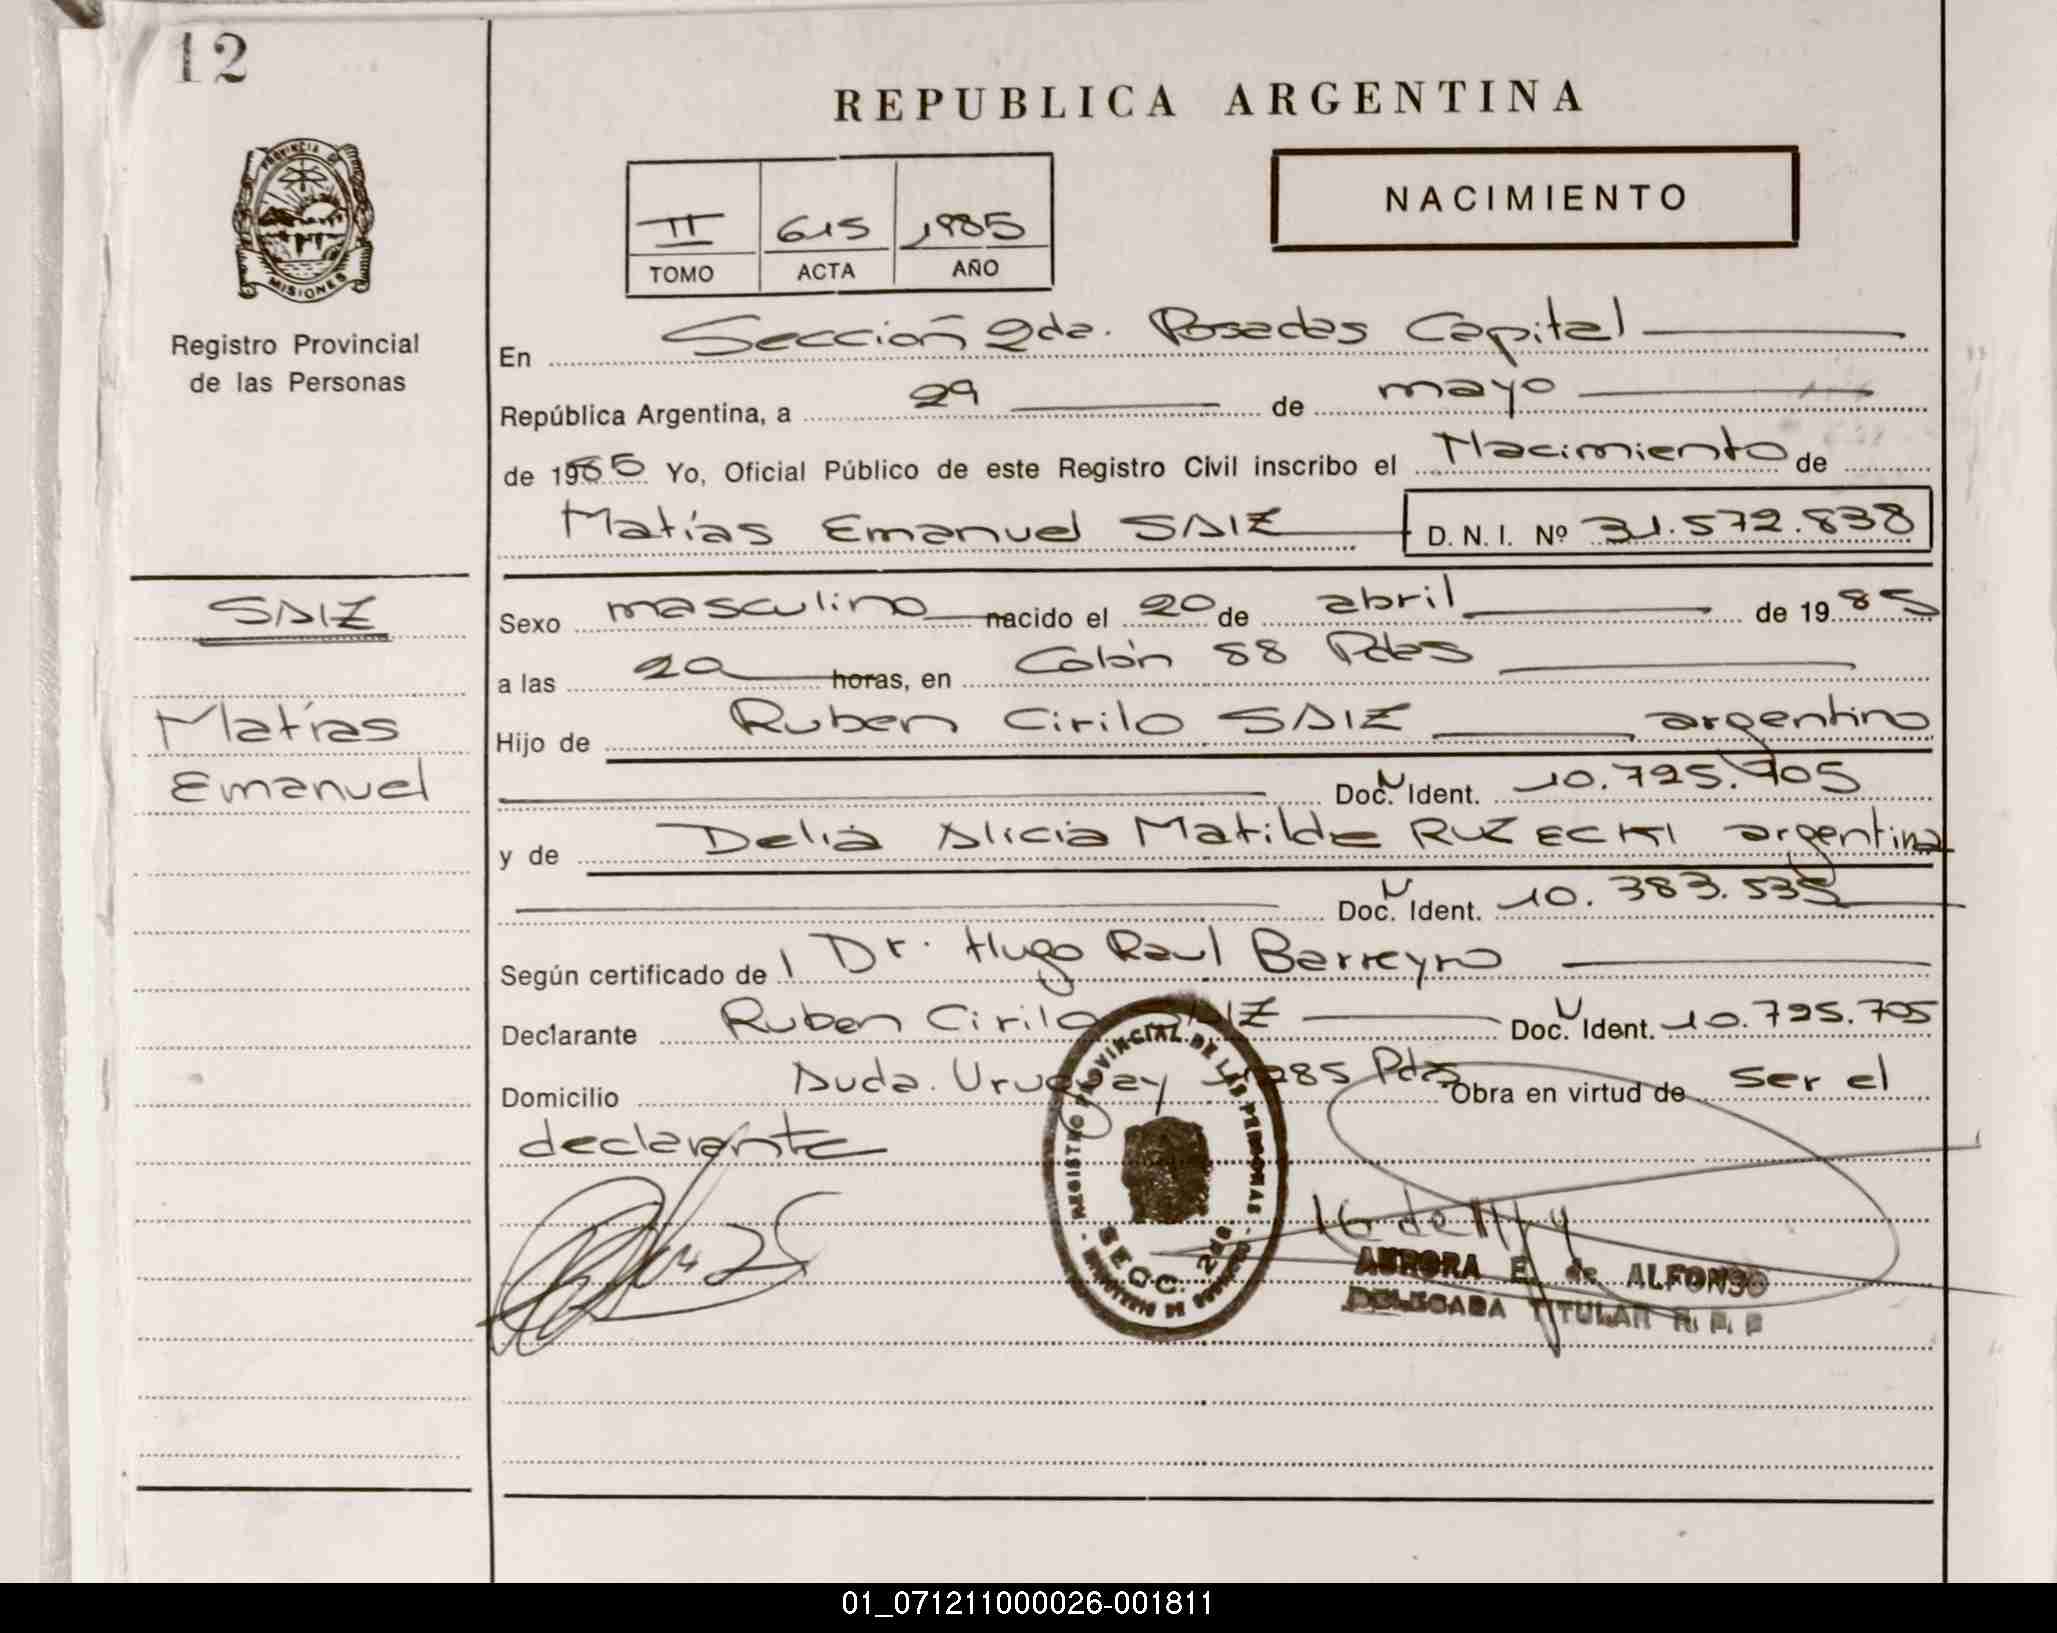 12
REPUBLICA ARGENTINA
PROVINCIA DE
MISIONES
Registro Provincial
de las Personas
NACIMIENTO
II 615 1985
TOMO ACTA AÑO
En Sección 2da. Posadas Capital
República Argentina, a 29 de mayo
de 1985 Yo, Oficial Público de este Registro Civil inscribo el Nacimiento de
Matías Emanuel SAIZ D. N. I. Nº 31.572.838
SAIZ
Matías
Emanuel
Sexo masculino nacido el 20 de abril de 1985
a las 20 horas, en Colón 88 Pdas
Hijo de Ruben Cirilo SAIZ argentino
Doc. N Ident. 10.725.705
y de Delia Alicia Matilde RUZECKI argentina
Doc. N Ident. 10.383.535
Según certificado de Dr. Hugo Raul Barreyro
Declarante Ruben Cirilo SAIZ Doc. N Ident. 10.725.705
Domicilio Avda. Uruguay Pdas Obra en virtud de ser el
declarante
REGISTRO PROVINCIAL DE LAS PERSONAS
SECC. 2da
AURORA E. de ALFONSO
DELEGADA TITULAR R. P. P
01_071211000026-001811